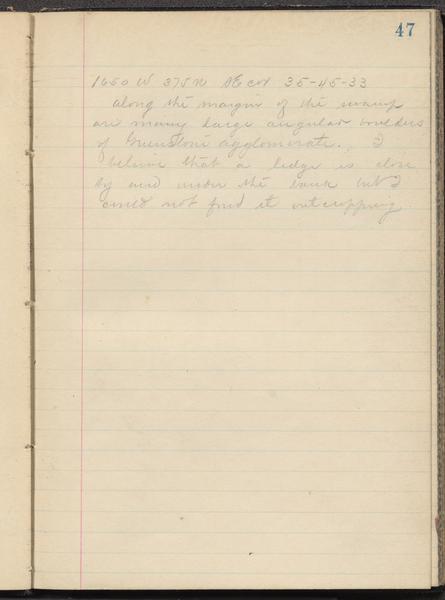 47
1650 W 375 N SE cor 35-45-33
along the margin of the swamp
are many large angular boulders
of Greenstone agglomerate. I
believe that a ledge is close
by and under the bank but I
could not find it outcropping.